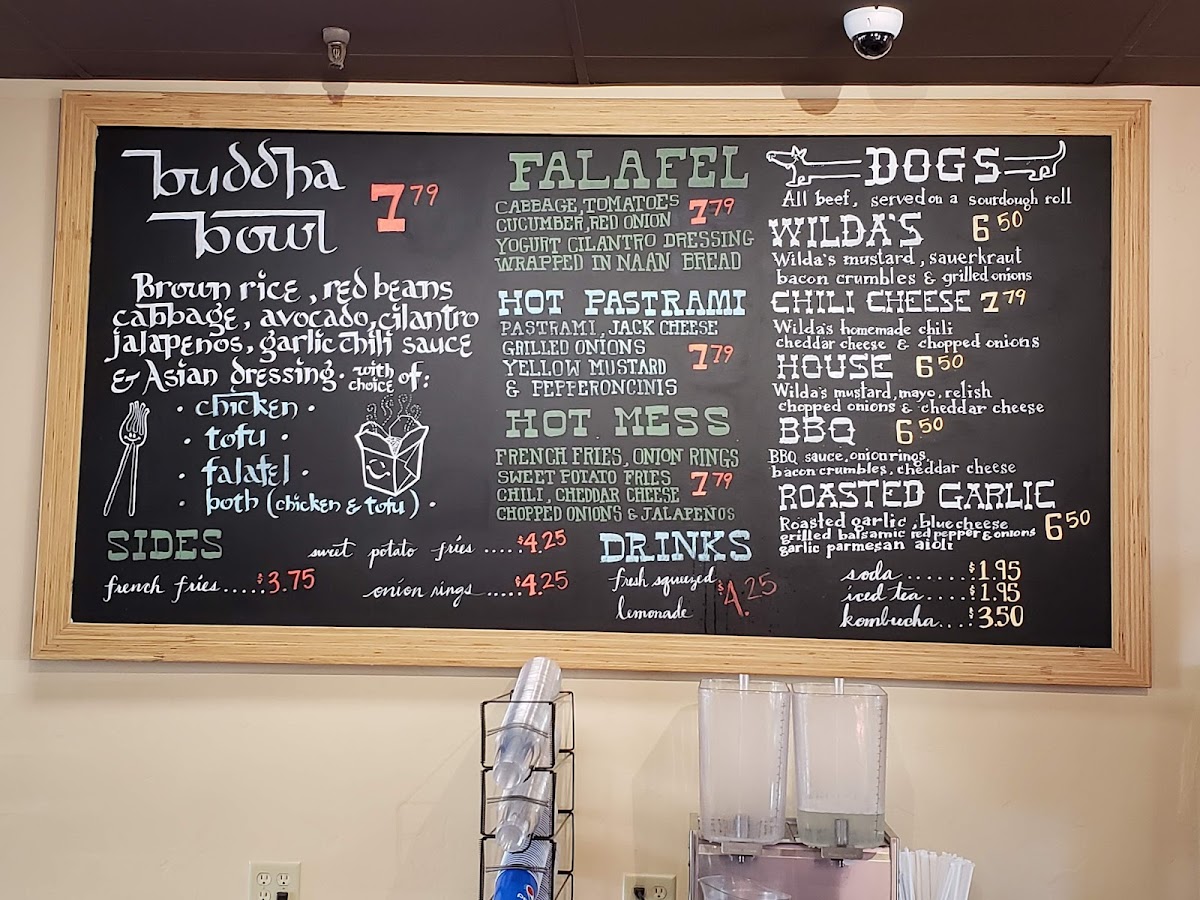 buddha
bowl
7 79
Brown rice, red beans
cabbage, avocado, cilantro
jalapenos, garlic chili sauce
& Asian dressing. with choice of:
· chicken ·
· tofu ·
· falafel ·
· both (chicken & tofu) ·
SIDES
french fries.....$3.75
sweet potato fries .....$4.25
onion rings.....$4.25
FALAFEL
CABBAGE, TOMATOES
CUCUMBER, RED ONION
7 79
YOGURT CILANTRO DRESSING
WRAPPED IN NAAN BREAD
HOT PASTRAMI
PASTRAMI, JACK CHEESE
GRILLED ONIONS
YELLOW MUSTARD
7 79
& PEPPERONCINIS
HOT MESS
FRENCH FRIES, ONION RINGS
SWEET POTATO FRIES
CHILI, CHEDDAR CHEESE
7 79
CHOPPED ONIONS & JALAPEÑOS
DRINKS
fresh squeezed
lemonade
$4.25
DOGS
All beef, served on a sourdough roll
WILDA'S 6 50
Wilda's mustard, sauerkraut
bacon crumbles & grilled onions
CHILI CHEESE 7 79
Wilda's homemade chili
cheddar cheese & chopped onions
HOUSE 6 50
Wilda's mustard, mayo, relish
chopped onions & cheddar cheese
BBQ 6 50
BBQ sauce, onion rings,
bacon crumbles, cheddar cheese
ROASTED GARLIC
Roasted garlic, blue cheese
grilled balsamic red pepper & onions
garlic parmesan aioli
6 50
soda.......$1.95
iced tea.....$1.95
kombucha...$3.50